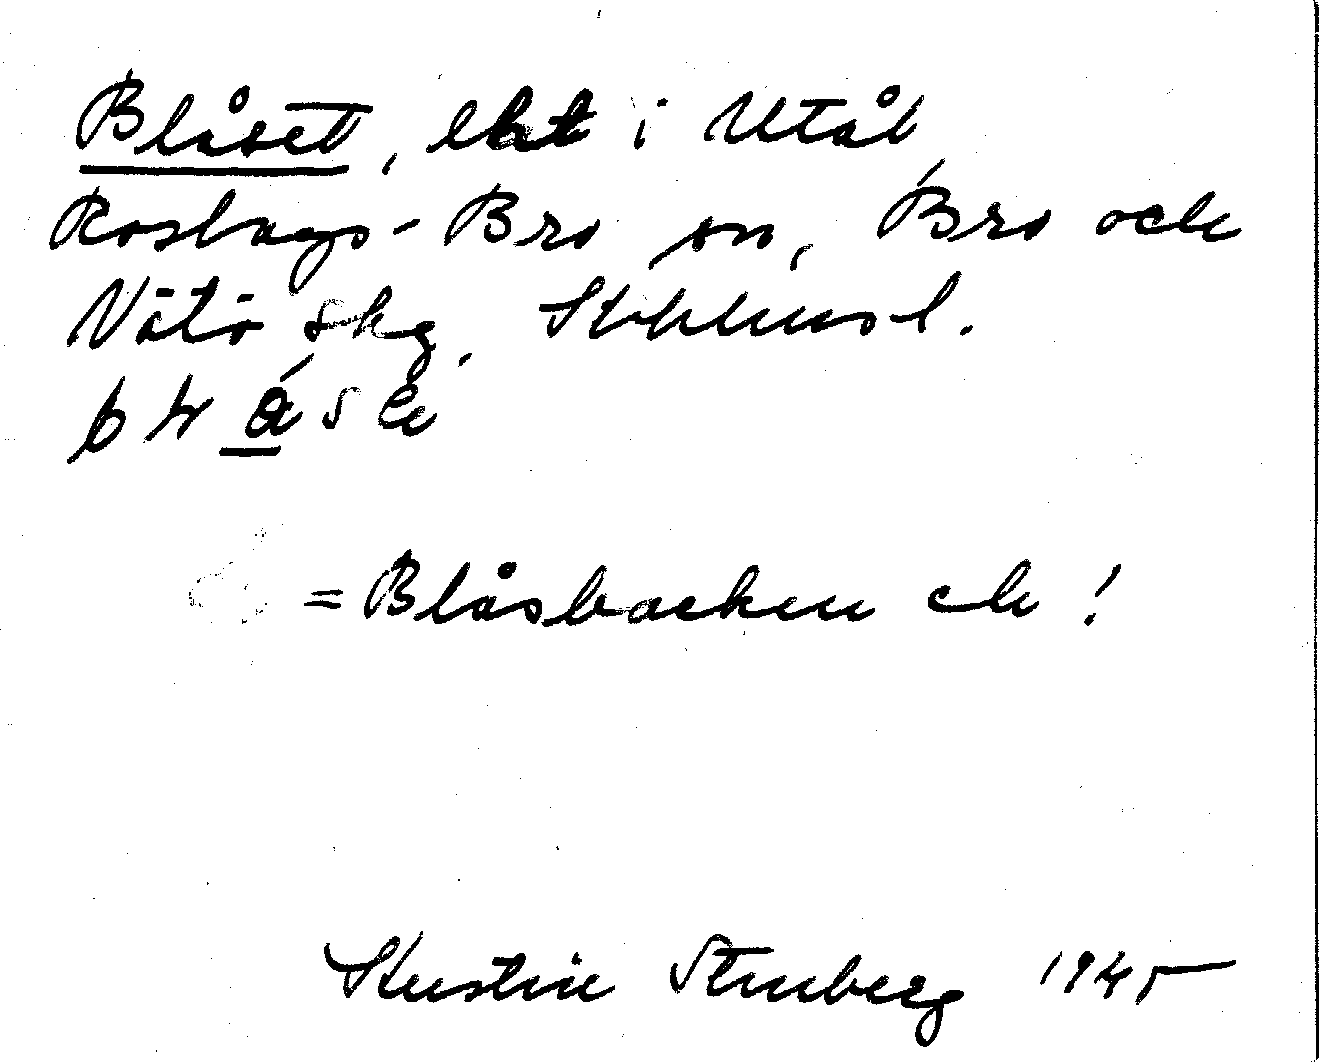 Blåset, lht i Utål,
Roslags-Bro sn, Bro och
Vätö skg. Stckhms l.
= Blåsbacken ck!
Kerstin Stenberg 1945